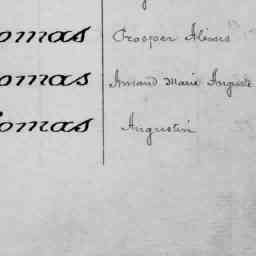 omas Prosper Alexis
omas Armand Marie Auguste
omas Augustin